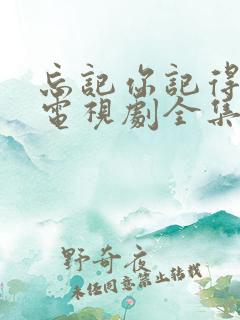 忘記你記得
電視劇全集
野奇夜
未经同意禁止转载